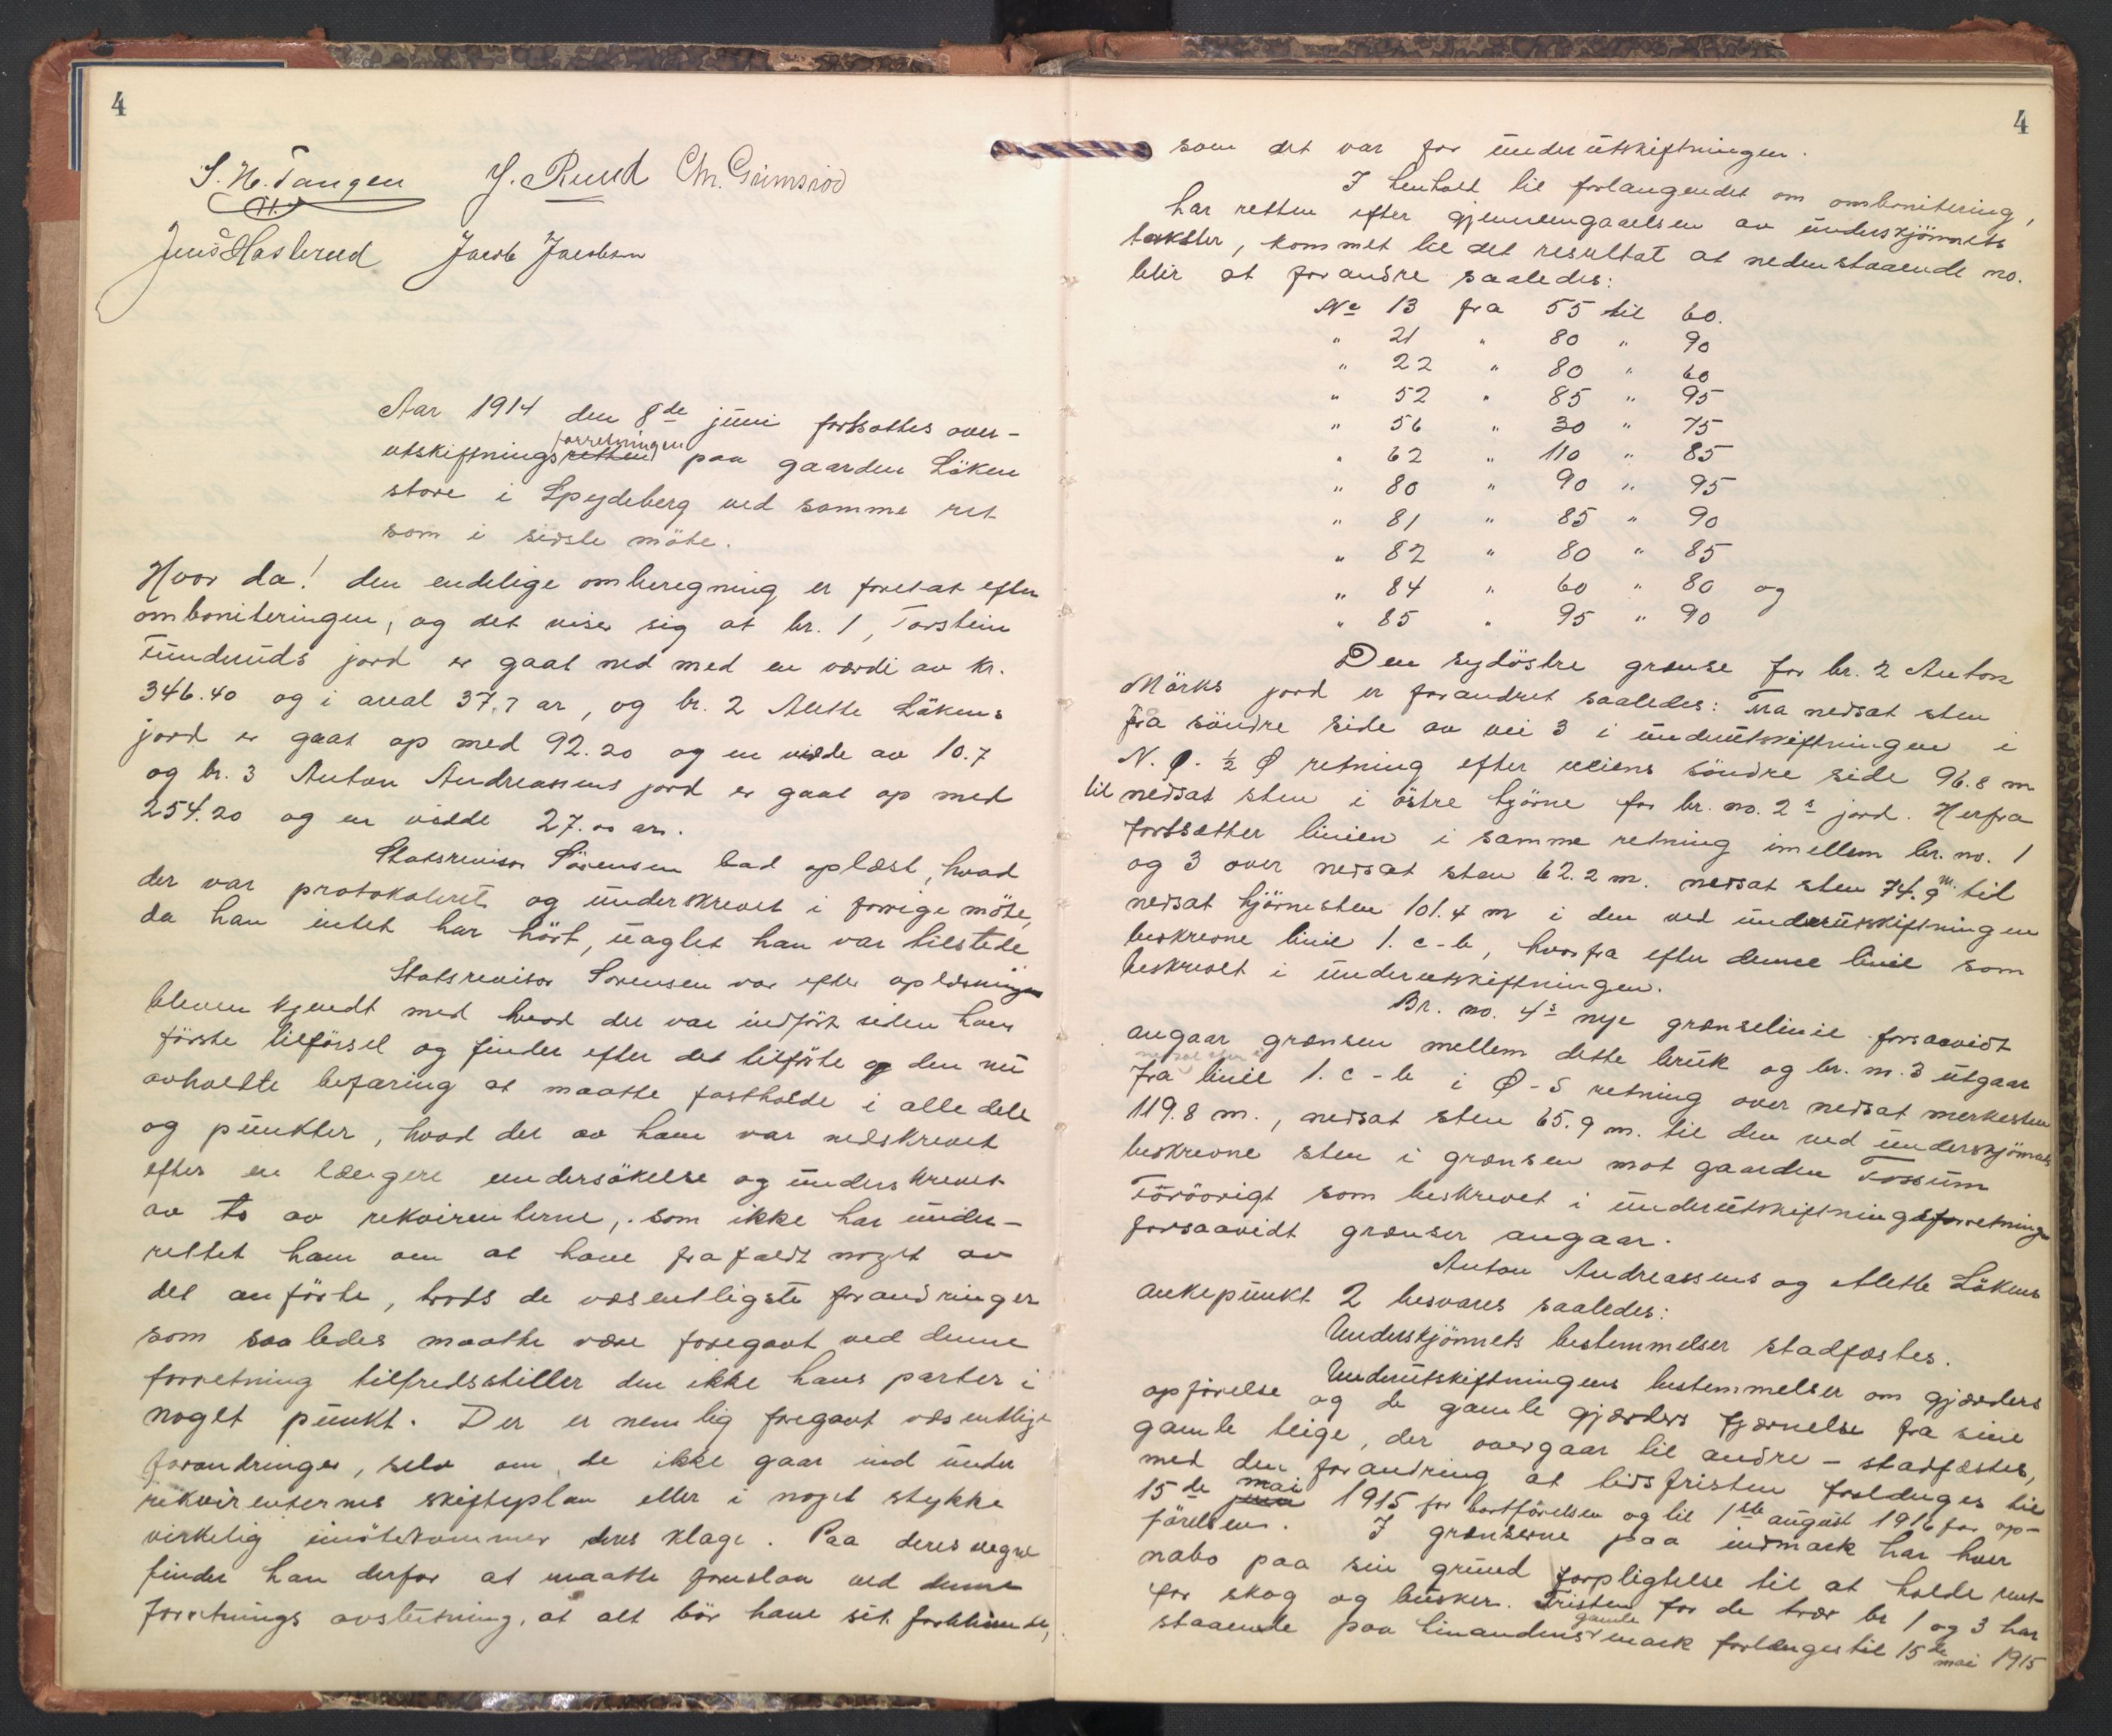 4
S. H. Tangen J. Ruud Chr. Grimsrød
Jens Haslerud Jacob Jacobsen
Aar 1914 den 8de juni fortsattes over-
utskiftningsforretningen paa gaarden Löken
store i Spydeberg ved samme ret
som i sidste möte.
Hvor da! den endelige omberegning er foretat efter
omboniteringen, og det viser sig at br. 1, Torstein
jord er gaat ned med en værdi av kr.
346.40 og i areal 37.7 ar, og br. 2 Alette Lökens
jord er gaat op med 92.20 og en vidde av 10.7
og br. 3 Anton Andreassens jord er gaat op med
254.20 og en vidde 27.00 ar.
Statsrevisor Sörensen bad oplæst, hvad
der var protokoleret og underskrevet i forrige möte,
da han intet har hört, uagtet han var tilstede
Statsrevisor Sorensen var efter oplæsningen
bleven kjendt med hvad der var indfört siden hans
förste tilförsel og finder efter det tilförte og den nu
avholdte befaring at maatte fastholde i alle dele
og punkter, hvad der av ham var nedskrevet
efter en længere undersökelse og underskrevet
av to av rekvirenterne, som ikke har under-
rettet ham om at have frafaldt noget av
det anförte, trods de væsentligste forandringer
som saaledes maatte være foregaat ved denne
forretning tilfredsstiller den ikke hans parter i
noget punkt. Der er nemlig foregaat væsentlige
forandringer, selv om de ikke gaar ind under
rekvirenternes skifteplan eller i noget stykke
virkelig imötekommer deres klage. Paa deres vegne
finder han derfor at maatte foreslaa ved denne
forretnings avslutning, at alt bör have sit forblivende,
4
som det var før underutskiftningen.
I henhold til forlangendet om ombonitering,
har retten efter gjennemgaaelsen av underskjönnets
takster, kommet til det resultat at nedenstaaende no.
blir at forandre saaledes:
No 13 fra 55 til 60.
" 21 " 80 " 90
" 22 " 80 " 60
" 52 " 85 " 95
" 56 " 30 " 75
" 62 " 110 " 85
" 80 " 90 " 95
" 81 " 85 " 90
" 82 " 80 " 85
" 84 " 60 " 80 og
" 85 " 95 " 90
Den sydöstre grænse for br. 2 Anton
Mörks jord er forandret saaledes: Fra nedsat sten
fra söndre side av vei 3 i underutskiftningen i
N. Ø. ½ Ø retning efter veiens söndre side 96.8 m
til nedsat sten i östre hjörne for br. no. 2s jord. Herfra
fortsætter linien i samme retning imellem br. no. 1
og 3 over nedsat sten 62.2 m. nedsat sten 74.9 m. til
nedsat hjörnesten 101.4 m i den ved underutskiftningen
beskrevne linie 1. c-b, hvorfra efter denne linie som
beskrevet i underutskiftningen.
Br. no. 4s nye grænselinie forsaavidt
angaar grænsen mellem dette bruk og br. nr. 3 utgaar
fra nedsat sten i linie 1. c-b i Ø-S retning over nedsat merkesten
119.8 m., nedsat sten 65.9 m. til den ved underskjönnet
beskrevne sten i grænsen mot gaarden Fossum
Forövrigt som beskrevet i underutskiftningsforretningen
forsaavidt grænser angaar.
Anton Andreassens og Alette Lökens
ankepunkt 2 besvares saaledes:
Underskjönnets bestemmelser stadfæstes.
Underutskiftningens bestemmelser om gjærders
opförelse og de gamle gjærders fjærnelse fra sine
gamle teige, der overgaar til andre – stadfæstes,
med den forandring at tidsfristen forlænges til
15de mai 1915 for bortförelsen og til 1ste august 1916 for op-
förelsen. I grænserne paa indmark har hver
nabo paa sin grund forpligtelse til at holde rent
for skog og busker. Fristen for de trær br 1 og 3 har
staaende paa hinandens gamle mark forlænges til 15de mai 1915